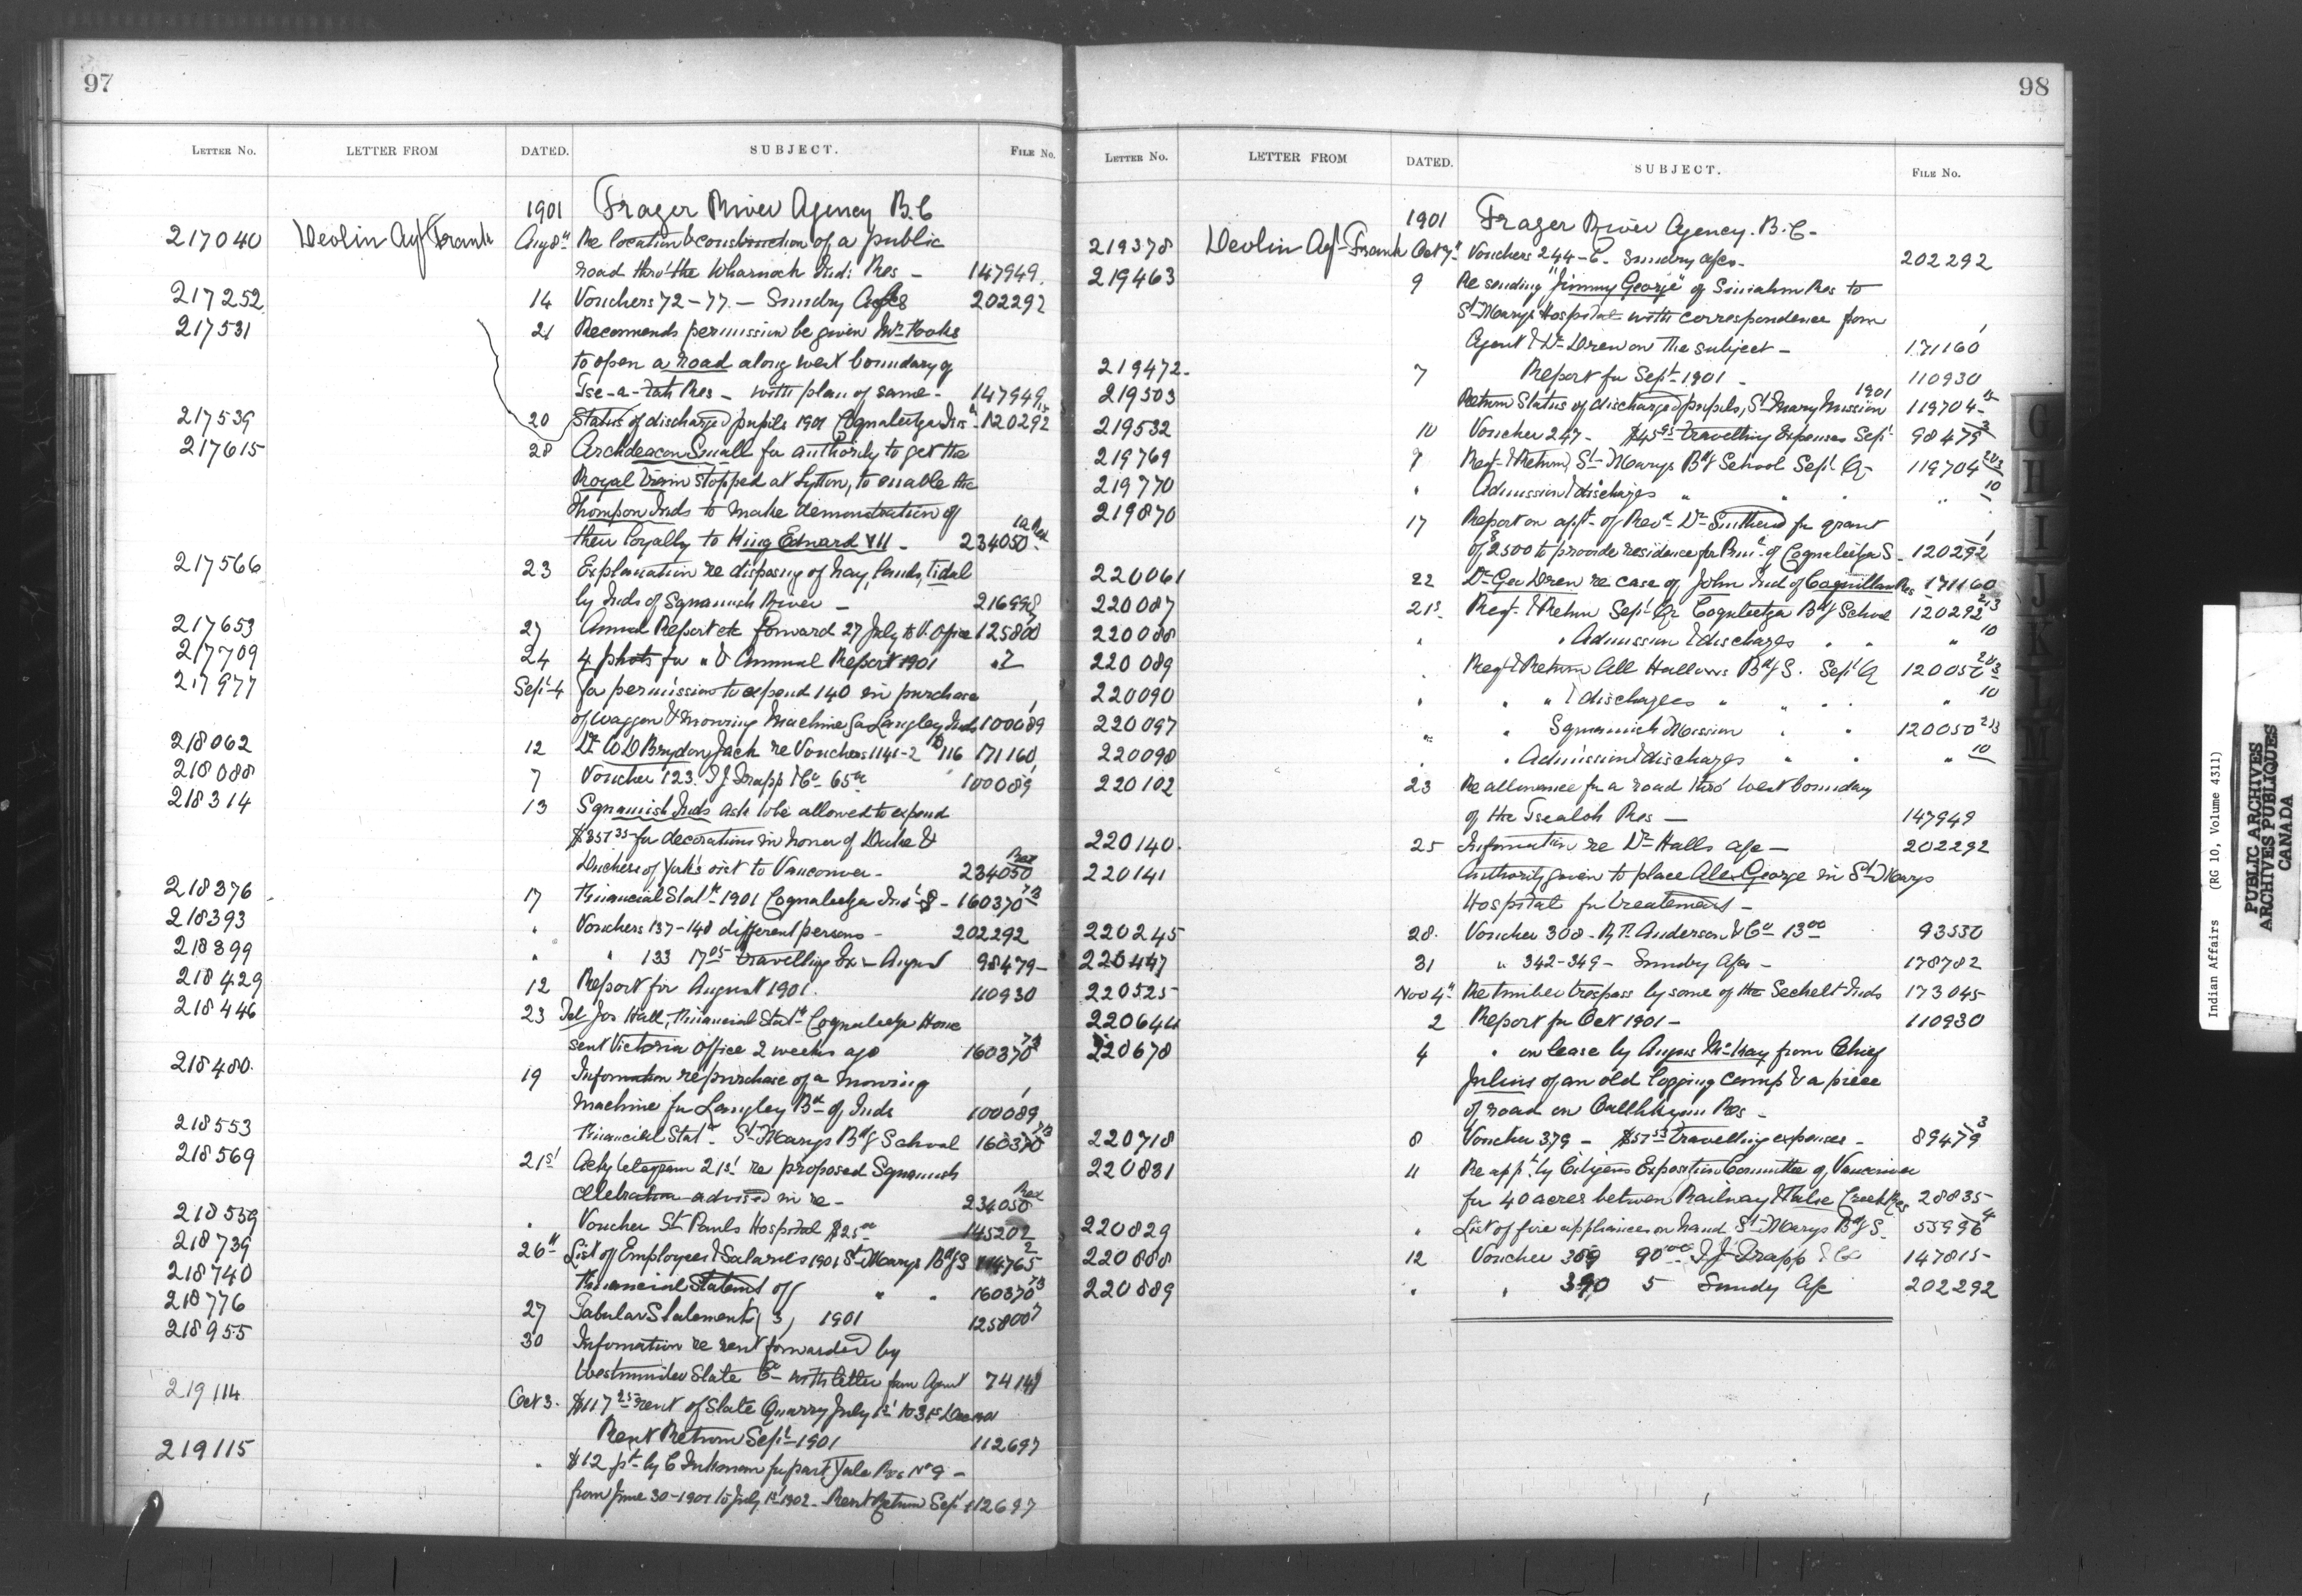 97
LETTER No. LETTER FROM DATED. SUBJECT. FILE No.
1901 Frazer River Agency B.C
217040 Devlin Agt Frank Aug 8th Re location & construction of a public
road thro' the Wharnock Ind: Res - 147949
217252 14 Vouchers 72-77 - Sundry 202292
217531 21 Recomends permission be given Mr
to open a road along west boundary of
Tse-a-tah Res - with plan of same - 147949
217539 20 Status of discharged pupils 1901 Coqualeetza Ins - 120292
217615 28 Archdeacon Small for authority to get the
Royal Train stopped at Lytton, to enable the
Thompson Inds to make demonstration of
their loyalty to King Edward VII - 234050
217566 23 Explanation re disposing of hay lands, tidal
by Inds of Squamish River - 216998
217653 27 Annual Report etc forward 27 July to V. Office 125800
217709 24 4 phots for " & Annual Report 1901
217977 Sept 4 for permission to expend 140 in purchase
of waggon & mowring Machine for Langley Inds 100089
218062 12 Dr W D Brydon Jack re Vouchers 1141-2 & 116 171160
218088 7 Voucher 123. T J Trapp & Co 65 100089
218314 13 Squamish Inds ask to be allowed to expend
$357 35 for decorations in honor of Duke &
Duchess of York's visit to Vancouver - 234050
218376 17 Financial Stat 1901 Coqualeetza Ind S - 160370
218393 " Vouchers 137-148 different persons - 202292
218399 " " 133 17 05 travelling Ex - August 98479 -
218429 12 Report for August 1901. 110930
218446 23 Tel Jos Hall, Financial Stat Coqualeetza Home
sent Victoria Office 2 weeks ago 160370
218480. 19 Information re purchase of a mowing
Machine for Langley Bd of Inds 100089
218553 Financial Stat - St Marys Bdg School 160370
218569 21st Acky telegram 21st re proposed Squamish
celebration advised in re - 234050
218559 " Voucher St Pauls Hospital $25 00 145202
218739 26th List of Employees & Salaries 1901 St Marys Bdg S 114765 2
218740 Financial Statemt of " " 160370
218776 27 Tabular Statement (3) 1901 125800 7
218955 30 Information re rent forwarded by
Westminster Slate Co with letter from Agent 74141
219114 Oct 3. $117 25 rent of Slate Quarry July 1st to 31st Dec
Rent Return Sept 1901 112697
219115 " $12 pt by C for part Yale Res No 9 -
from June 30 - 1901 to July 1st 1902 - Rent Return Sept 112697
98
LETTER No. LETTER FROM DATED. SUBJECT. FILE No.
1901 Frazer River Agency. B.C.
219378 Devlin Agt Frank Oct 7th Vouchers 244-6. Sundry a/cs - 202292
219463 9 Re sending "Jimmy George" of Sumahm Res to
St Marys Hospital with correspondence from
Agent & Dr Drew on the subject - 171160
219472 - 7 Report for Sept 1901 - 110930
219503 Return Status of discharged pupils, St Mary Mission 1901 119704 -
219532 10 Voucher 247 - $45 95 travelling Expenses Sept 98479 3
219769 9 Reqt & Return, St Marys Bdg School Sept Q - 119704
219770 " Admission & discharges " " 10
219870 17 Report on appt of Revd Dr for grant
of $2500 to provide residence for Prin of Coqualeetza S - 120292
220061 22 Dr Geo Drew re case of John Ind of Coquillan Res 171160
220087 21st Reqt & Return Sept Qr Coqaleetza Bdg School 120292
220088 " " Admission & discharges " " " 10
220089 Reqt & Return All Hallows Bdg S. Sept Q 120050
220090 " " " & discharges " " " 10
220097 " " Squamish Mission " " 120050
220098 " " Admission & discharges " " " 10
220102 23 Re allowance for a road thro' West boundary
of the Tsealoh Res - 147949
220140. 25 Information re Dr Halls a/c - 202292
220141 Authority given to place Alex George in St Marys
Hospital for treatement -
220245 28. Voucher 308 - R P. Anderson & Co 13 00 93550
220447 31 " 342-349 - Sundry a/cs - 178782
220525 Nov 4th Re timber trespass by some of the Sechelt Inds 173045
220644 2 Report for Oct 1901 - 110930
220678 4 " on lease by Angus McKay from Chief
Julius of an old logging camp & a piece
of road on Res -
220718 8 Voucher 379 - $57 53 travelling expenses - 89479 3
220831 11 Re appt by Citizens Exposition Committee of Vancouver
for 40 acres between Railway & False Creek Res 28835 -
220829 " List of fire appliances on hand St Marys Bdg S. 55996 4
220888 12 Voucher 389 90 00 T J Trapp & Co 147815 -
220889 " " 390 5 Sundy a/c 202292
G
H
I
J
K
L
M
Indian Affairs (RG 10, Volume 4311)
PUBLIC ARCHIVES
ARCHIVES PUBLIQUES
CANADA